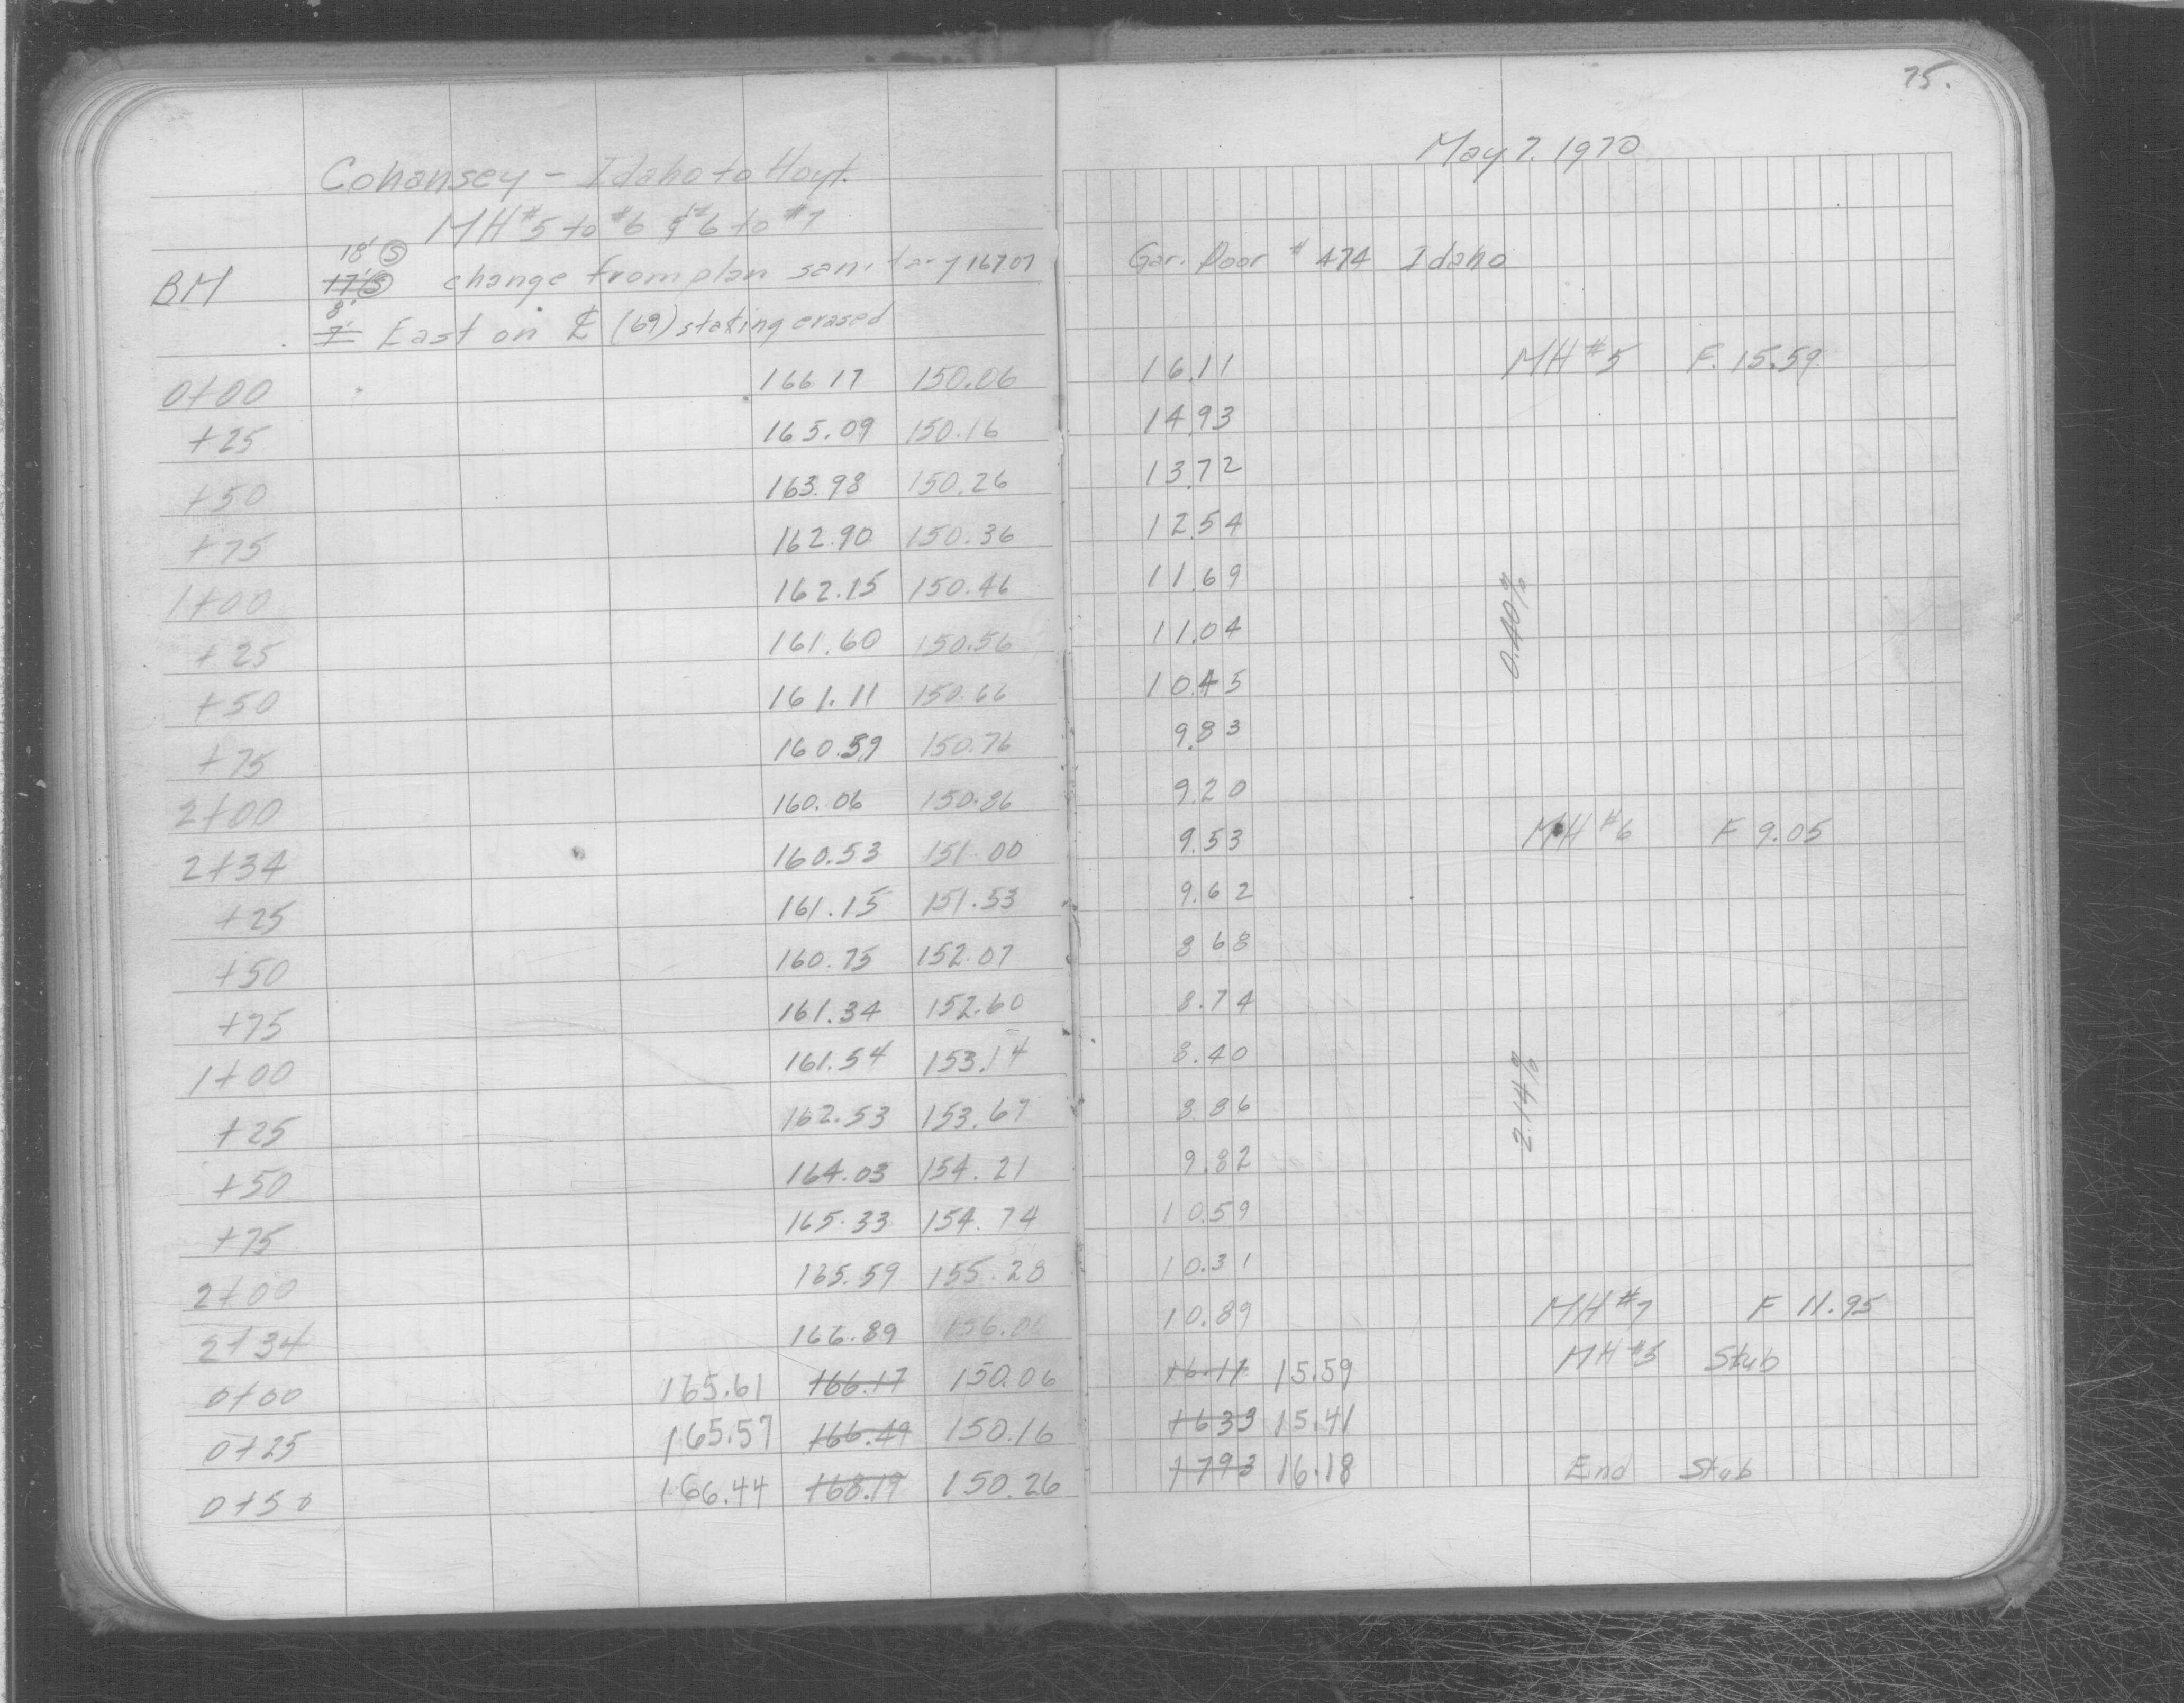 75.
May 7. 1970
Cohansey - Idaho to Hoyt.
MH #5 to #6 & #6 to #7
18' S
BM 17' S change from plan sanitary 167.07 Gar. Door # 474 Idaho
8'
7' East on ℄ (69) staking erased
0+00 166.17 150.06 16.11 MH #5 F. 15.59
+25 165.09 150.16 14.93
+50 163.98 150.26 13.72
+75 162.90 150.36 12.54
1+00 162.15 150.46 11.69
+25 161.60 150.56 11.04
+50 161.11 150.66 10.45
0.40%
+75 160.59 150.76 9.83
2+00 160.06 150.86 9.20
2+34 160.53 151.00 9.53 MH #6 F 9.05
+25 161.15 151.53 9.62
+50 160.75 152.07 8.68
+75 161.34 152.60 8.74
1+00 161.54 153.14 8.40
+25 162.53 153.67 8.86
2.14%
+50 164.03 154.21 9.82
+75 165.33 154.74 10.59
2+00 165.59 155.28 10.31
2+34 166.89 156.00 10.89 MH #7 F 11.95
0+00 165.61 166.17 150.06 16.11 15.59 MH #5 Stub
0+25 165.57 166.49 150.16 16.33 15.41
0+50 166.44 168.19 150.26 17.93 16.18 End Stub